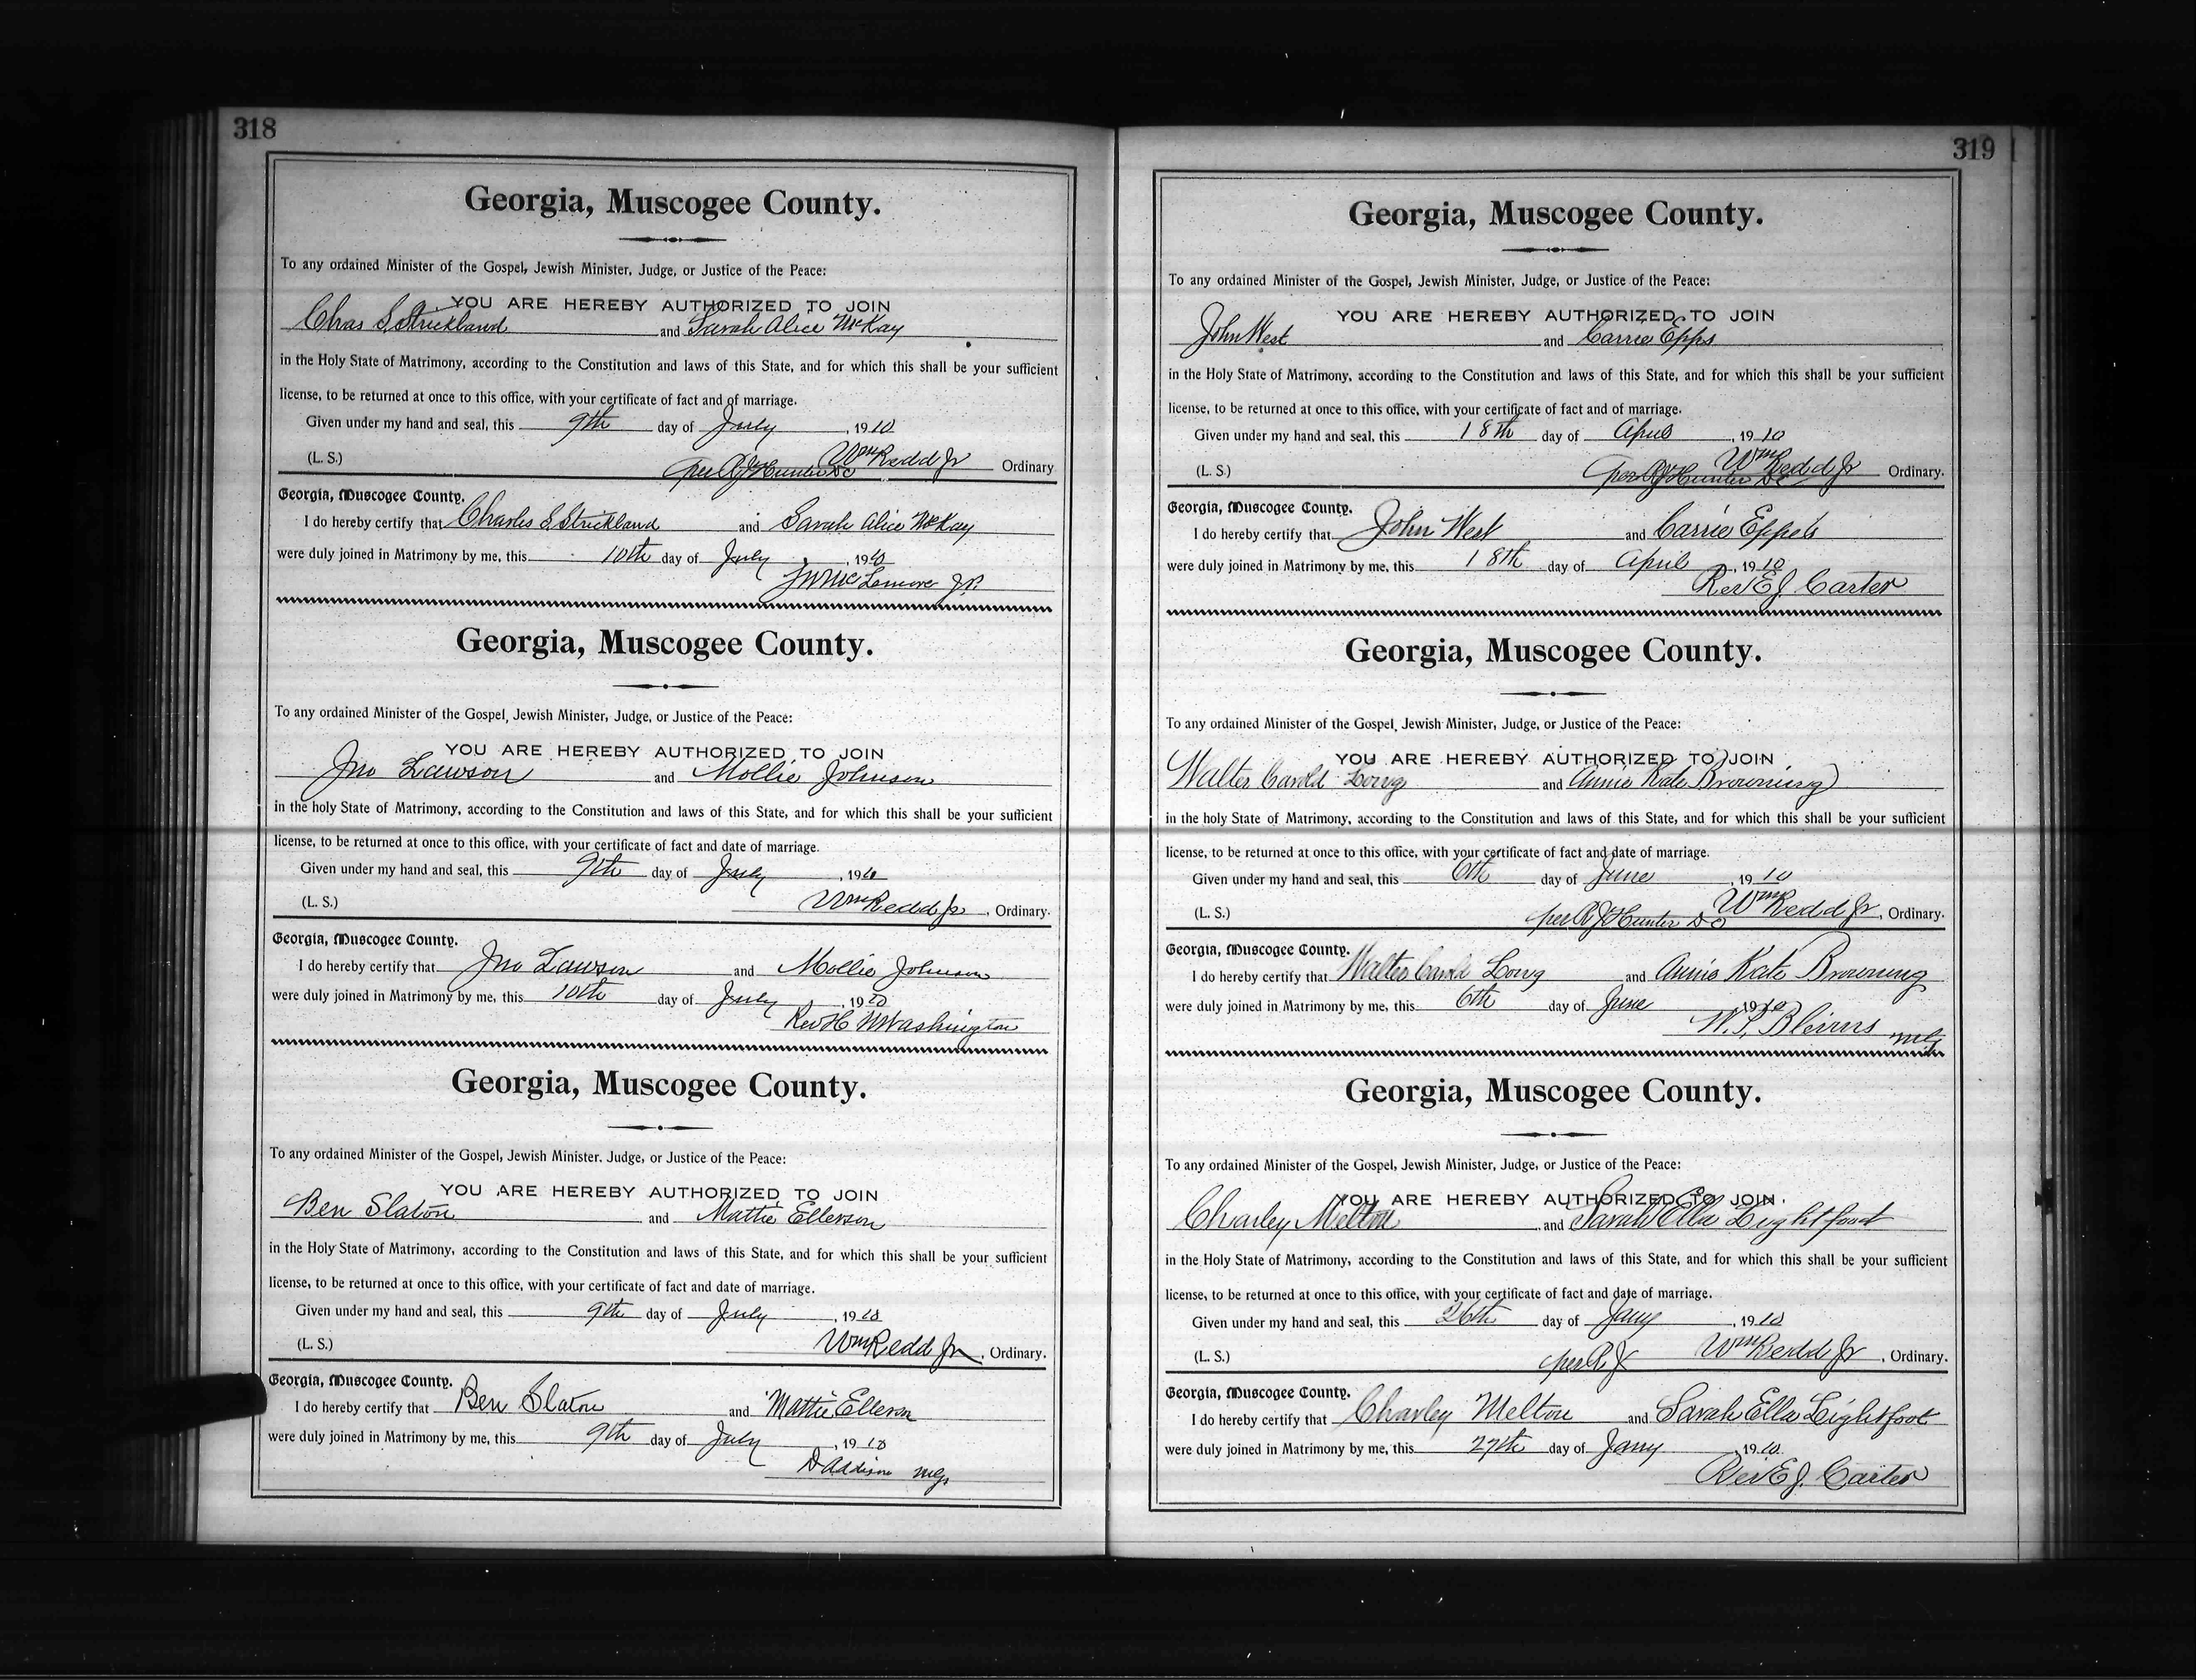 318
Georgia, Muscogee County.
To any ordained Minister of the Gospel, Jewish Minister, Judge, or Justice of the Peace:
YOU ARE HEREBY AUTHORIZED TO JOIN
Chas S. Strickland and Sarah Alice McKay
in the Holy State of Matrimony, according to the Constitution and laws of this State, and for which this shall be your sufficient
license, to be returned at once to this office, with your certificate of fact and of marriage.
Given under my hand and seal, this 9th day of July, 1910
(L. S.) Wm Redd Jr Ordinary
per R J Hunter DC
Georgia, Muscogee County.
I do hereby certify that Charles S. Strickland and Sarah Alice McKay
were duly joined in Matrimony by me, this 10th day of July, 1910
McLemore J.P.
Georgia, Muscogee County.
To any ordained Minister of the Gospel, Jewish Minister, Judge, or Justice of the Peace:
YOU ARE HEREBY AUTHORIZED TO JOIN
Jno Lawson and Mollie Johnson
in the holy State of Matrimony, according to the Constitution and laws of this State, and for which this shall be your sufficient
license, to be returned at once to this office, with your certificate of fact and date of marriage.
Given under my hand and seal, this 9th day of July, 1910
(L. S.) Wm Redd Jr, Ordinary.
Georgia, Muscogee County.
I do hereby certify that Jno Lawson and Mollie Johnson
were duly joined in Matrimony by me, this 10th day of July, 1910
Rev H Washington
Georgia, Muscogee County.
To any ordained Minister of the Gospel, Jewish Minister. Judge, or Justice of the Peace:
YOU ARE HEREBY AUTHORIZED TO JOIN
Ben Slaton and Mattie Ellerson
in the Holy State of Matrimony, according to the Constitution and laws of this State, and for which this shall be your sufficient
license, to be returned at once to this office, with your certificate of fact and date of marriage.
Given under my hand and seal, this 9th day of July, 1910
(L. S.) Wm Redd Jr, Ordinary.
Georgia, Muscogee County.
I do hereby certify that Ben Slaton and Mattie Ellerson
were duly joined in Matrimony by me, this 9th day of July, 1910
D Addison mg
319
Georgia, Muscogee County.
To any ordained Minister of the Gospel, Jewish Minister, Judge, or Justice of the Peace:
YOU ARE HEREBY AUTHORIZED TO JOIN
John West and Carrie Epps
in the Holy State of Matrimony, according to the Constitution and laws of this State, and for which this shall be your sufficient
license, to be returned at once to this office, with your certificate of fact and of marriage.
Given under my hand and seal, this 18th day of April, 1910
(L. S.) Wm Redd Jr Ordinary.
per R J Hunter DC
Georgia, Muscogee County.
I do hereby certify that John West and Carrie Epps
were duly joined in Matrimony by me, this 18th day of April, 1910
Rev E J. Carter
Georgia, Muscogee County.
To any ordained Minister of the Gospel, Jewish Minister, Judge, or Justice of the Peace:
YOU ARE HEREBY AUTHORIZED TO JOIN
Walter Carold Long and Annie Kate Browning
in the holy State of Matrimony, according to the Constitution and laws of this State, and for which this shall be your sufficient
license, to be returned at once to this office, with your certificate of fact and date of marriage.
Given under my hand and seal, this 6th day of June, 1910
(L. S.) Wm Redd Jr, Ordinary.
per R J Hunter DC
Georgia, Muscogee County.
I do hereby certify that Walter Carold Long and Annie Kate Browning
were duly joined in Matrimony by me, this 6th day of June, 1910
W. P. Blevins mg
Georgia, Muscogee County.
To any ordained Minister of the Gospel, Jewish Minister, Judge, or Justice of the Peace:
YOU ARE HEREBY AUTHORIZED TO JOIN
Charley Melton and Sarah Ella Lightfoot
in the Holy State of Matrimony, according to the Constitution and laws of this State, and for which this shall be your sufficient
license, to be returned at once to this office, with your certificate of fact and date of marriage.
Given under my hand and seal, this 26th day of Jany, 1910
(L. S.) per R J Wm Redd Jr, Ordinary.
Georgia, Muscogee County.
I do hereby certify that Charley Melton and Sarah Ella Lightfoot
were duly joined in Matrimony by me, this 27th day of Jany, 1910
Rev E J. Carter